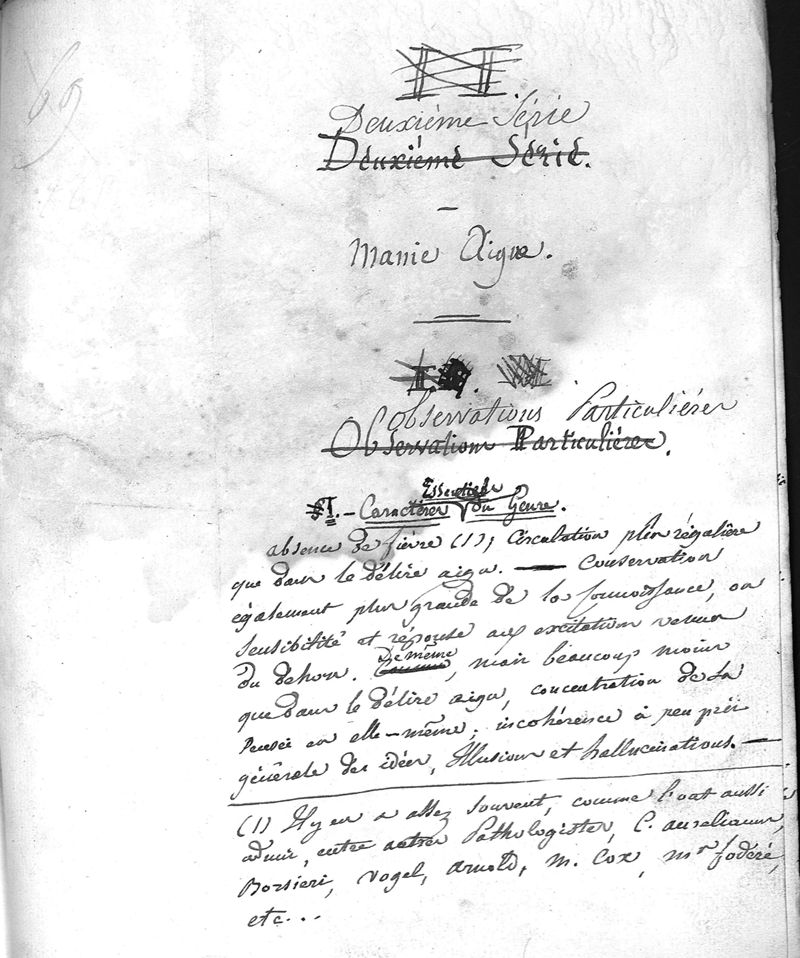 69
II
Deuxiéme Série
Deuxiéme Série.
Manie Aigue.
I.
Observations Particulières
Observations Particulières.
§I. - Caractères Essentiels du Genre.
absence de fièvre (1); Circulation plus régulière
que dans le délire aigu. — Conservation
également plus grande de la connoissance, ou
sensibilité et réponse aux excitation venues
du dehors. De même, mais beaucoup moins
que dans le délire aigu, concentration de la
Pensée en elle-même; incohérence à peu près
générale des idées, Illusions et hallucinations. —
(1) Il y en a assez souvent, comme l'ont aussi
admis, entre autres Pathologistes, C. aurelianus,
Borsieri, Vogel, arnold, m. Cox, mr fodéré,
etc...